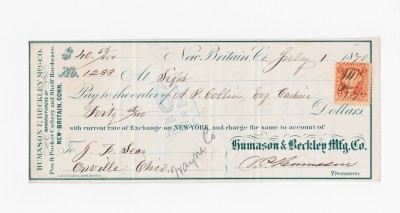 HUMASON & BECKLEY MFG. CO.
MANUFACTURERS OF
Pen & Pocket Cutlery and Shelf Hardware.
NEW-BRITAIN, CONN.
$ 40 5/100 New Britain, Ct. July 1 1870
No. 1233 At Sight
Pay to the order of A. P. Collins, Esq. Cashier
Forty 5/100 Dollars
with current rate of Exchange on NEW-YORK, and charge the same to account of
To J. F. Sear Humason & Beckley Mfg. Co.
Orrville Ohio. Humason
Wayne Co Treasurer.